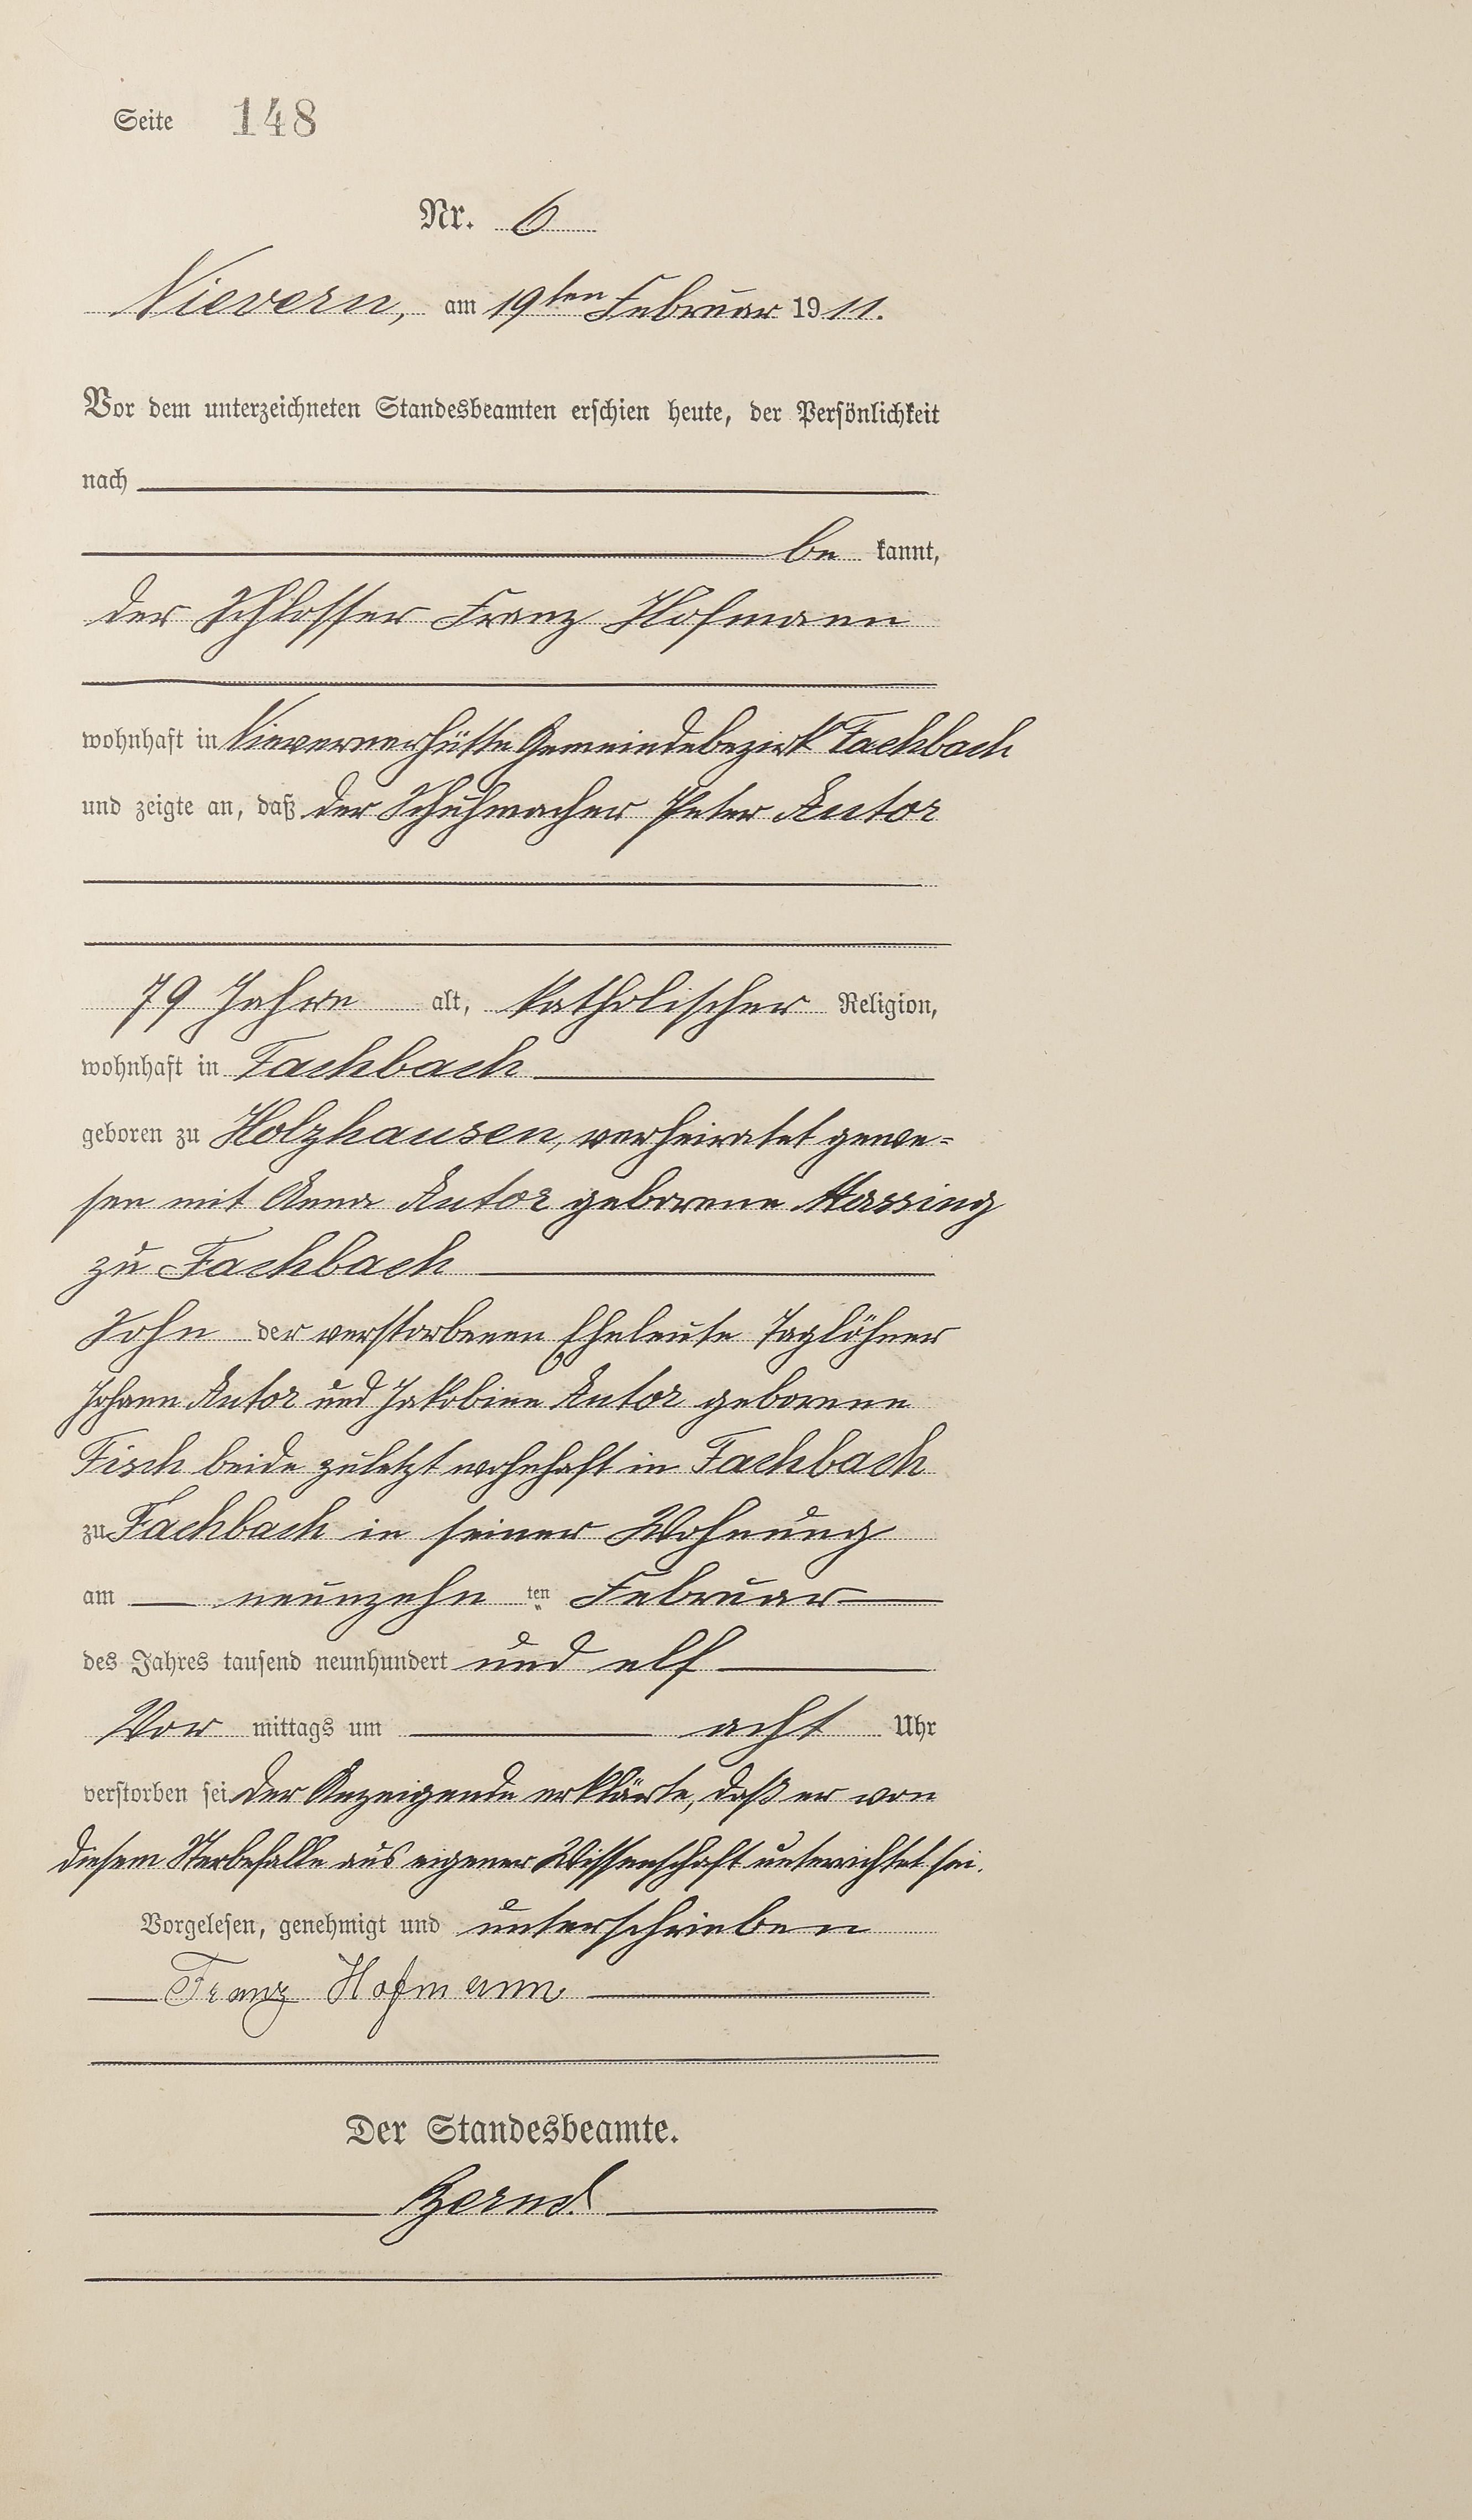 Seite 148
Nr. 6
Nievern, am 19ten Februar 1911.
Vor dem unterzeichneten Standesbeamten erschien heute, der Persönlichkeit
nach
be kannt,
der Schlosser Franz Hofmann
wohnhaft in Nievernerhütte Gemeindebezirk Fachbach
und zeigte an, daß der Schuhmacher Peter Autor
79 Jahre alt, katholischer Religion,
wohnhaft in Fachbach
geboren zu Holzhausen, verheiratet gewe=
sen mit Anna Autor geborene Massing
zu Fachbach
Sohn der verstorbenen Eheleute Taglöhner
Johann Autor und Jakobine Autor geborene
Fisch beide zuletzt wohnhaft in Fachbach
zu Fachbach in seiner Wohnung
am neunzehn ten Februar
des Jahres tausend neunhundert und elf
Vor mittags um acht Uhr
verstorben sei der Anzeigende erklärte, daß er von
diesem Sterbefalle aus eigener Wissenschaft unterrichtet sei.
Vorgelesen, genehmigt und unterschrieben
Franz Hofmann
Der Standesbeamte.